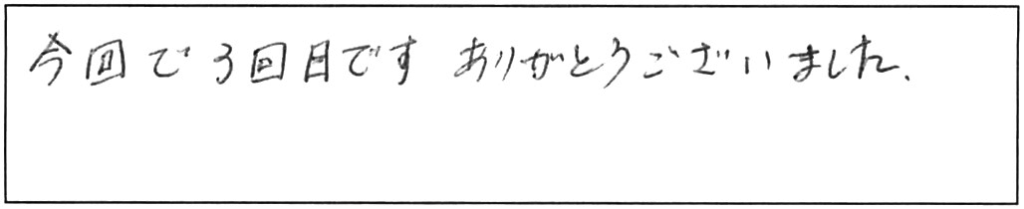 今回で3回目です ありがとうございました.